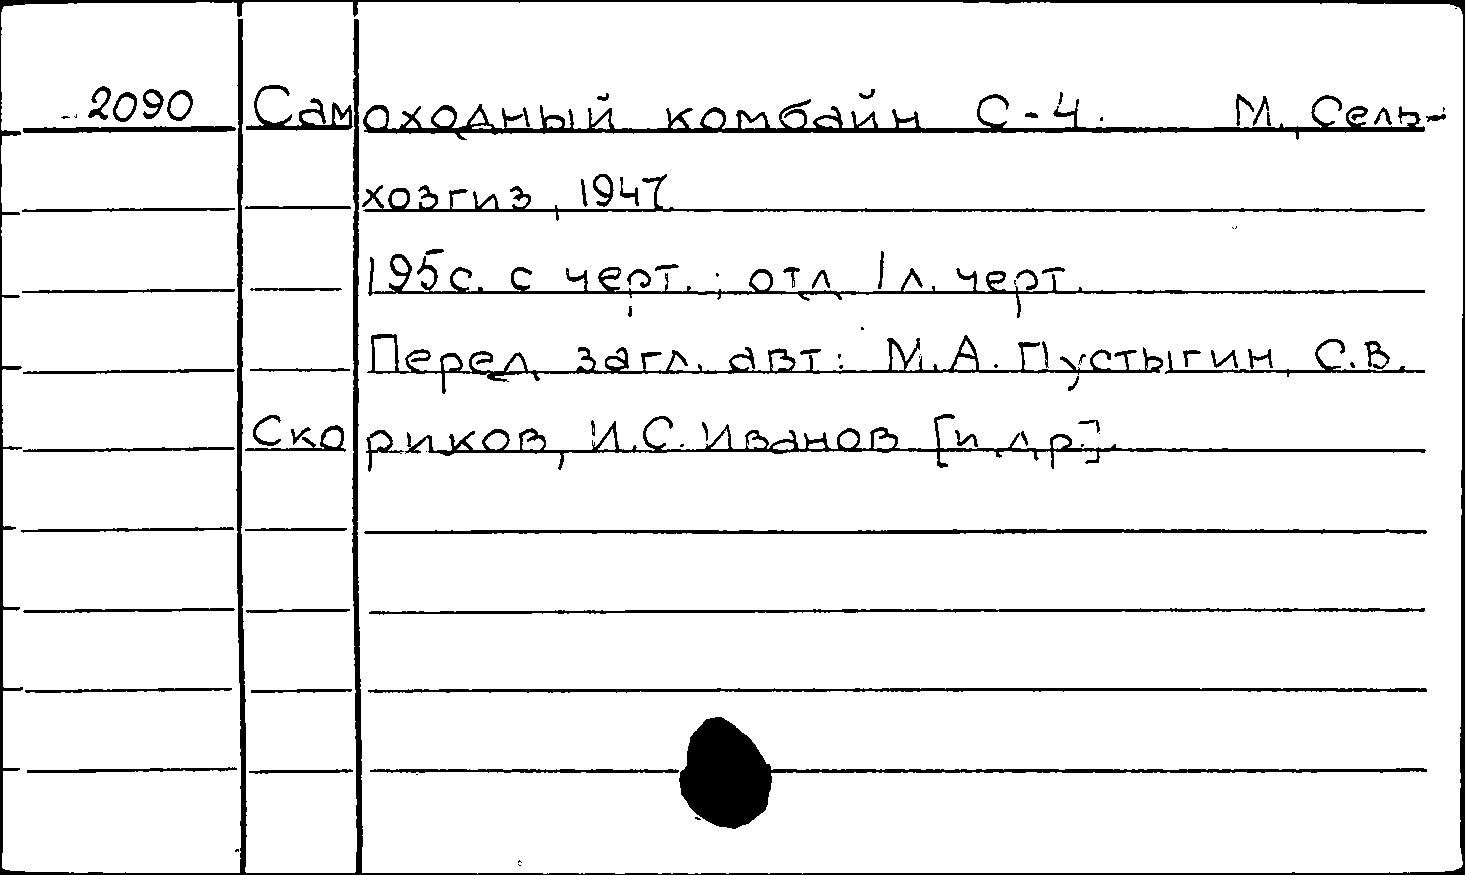 2090 Самоходный комбайн С-4. М., Сель-
хозгиз, 1947.
195с. с черт.; отл. 1л. черт.
Перед загл. авт: М.А. Пустыгин, С.В.
Скориков, И.С. Иванов [и др.].